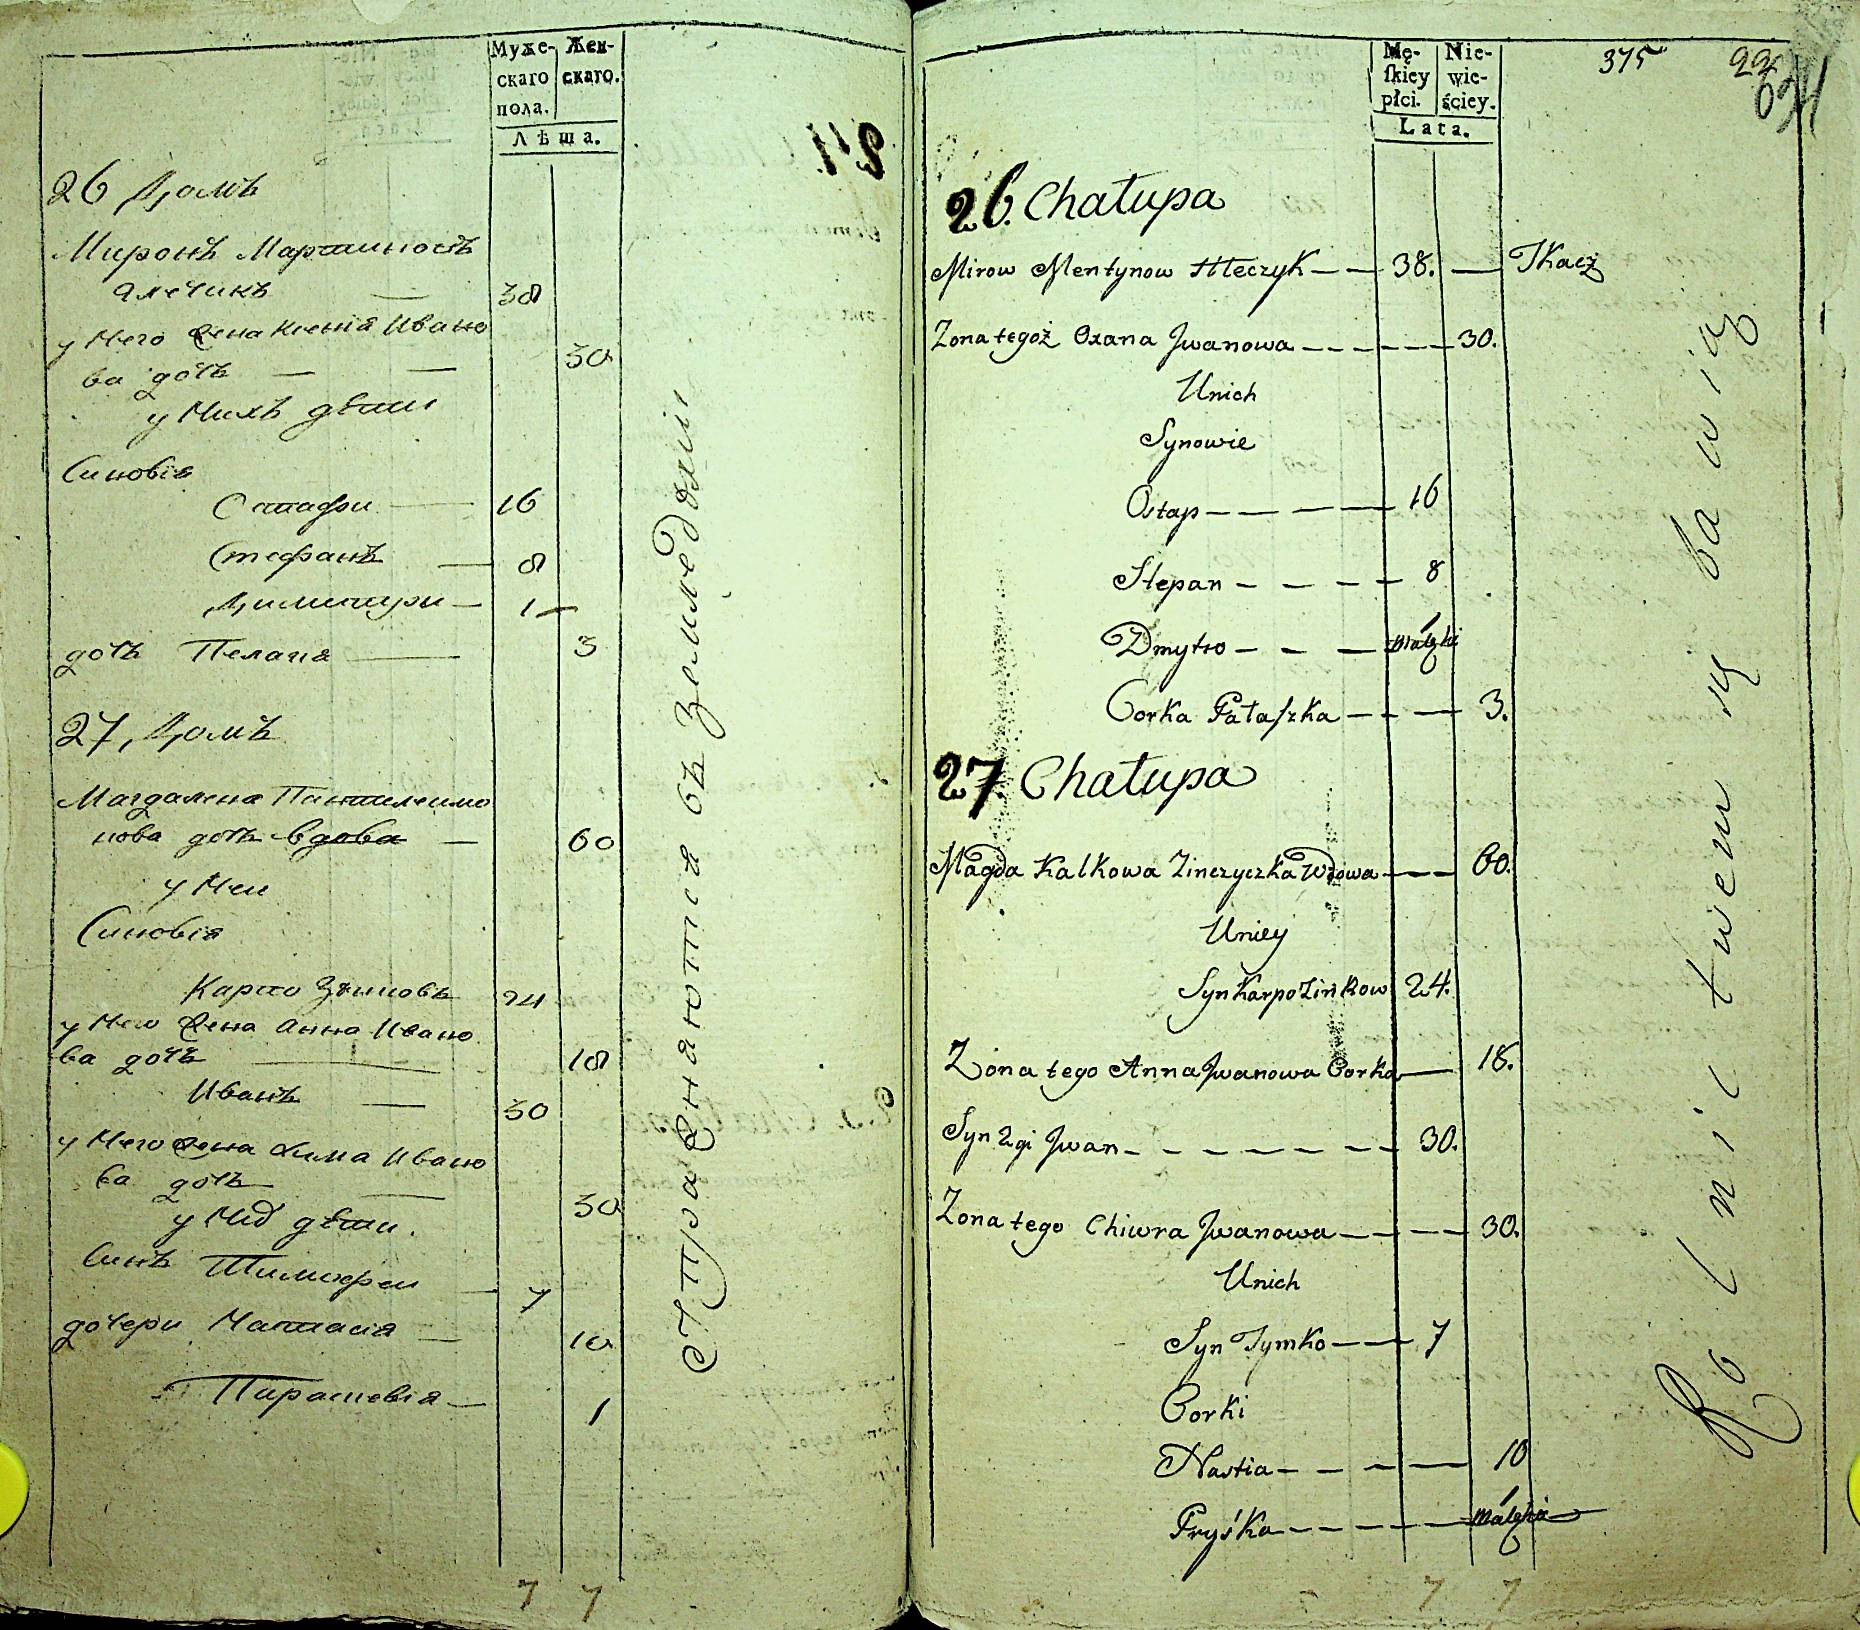 Муже-
скаго
пола.
Жен-
скаго.
Лѣта.
26 Домъ
Миронъ Мартиновъ
Ялечикъ — 38
у Него Жена Ксенія Ивано
ва дочь — — 30
у Нихъ дѣти
Синовія
Стафи — 16
Стефанъ — 8
Димитри — 1 —
дочь Пелагія — 3
27, Домъ
Магдалена Пантилеимо
нова дочь вдова — 60
у Неи
Синовія
Карпо Зѣновъ 24
у Него Жена Анна Ивано
ва дочь — 18
Иванъ — 30
у Него Жена Хима Ивано
ва дочь — 30
у Них дѣти.
Синъ Тимофеи — 7
дочери Натасія — 10
Парасковія — 1
Упражняются въ Земледѣліи
7 7
Mę-
ſkiey
płci.
Nie-
wie-
ściey.
Lata.
375
26. Chałupa
Mirow Mentynow Hleczyk — — 38. — Tkacz
Zona tegoż Oxana Jwanowa — — — — — 30.
Unich
Synowie
Ostap — — — — 16
Stepan — — — — 8
Dmytro — — — małęki
Corka Pałaſzka — — — 3.
27. Chałupa
Magda Kalkowa Zinczyczka Wdowa — — — 60.
Uniey
Syn Karpo Zinkow 24.
Zona tego Anna Jwanowa Corka — 18.
Syn 2gi Jwan — — — — — — — 30.
Zona tego Chiwra Jwanowa — — — — 30.
Unich
Syn Tymko — — 7
Corki
Nastia — — — — 10
Pryśka — — — — — małęka
Rolnictwem się bawią
7 7